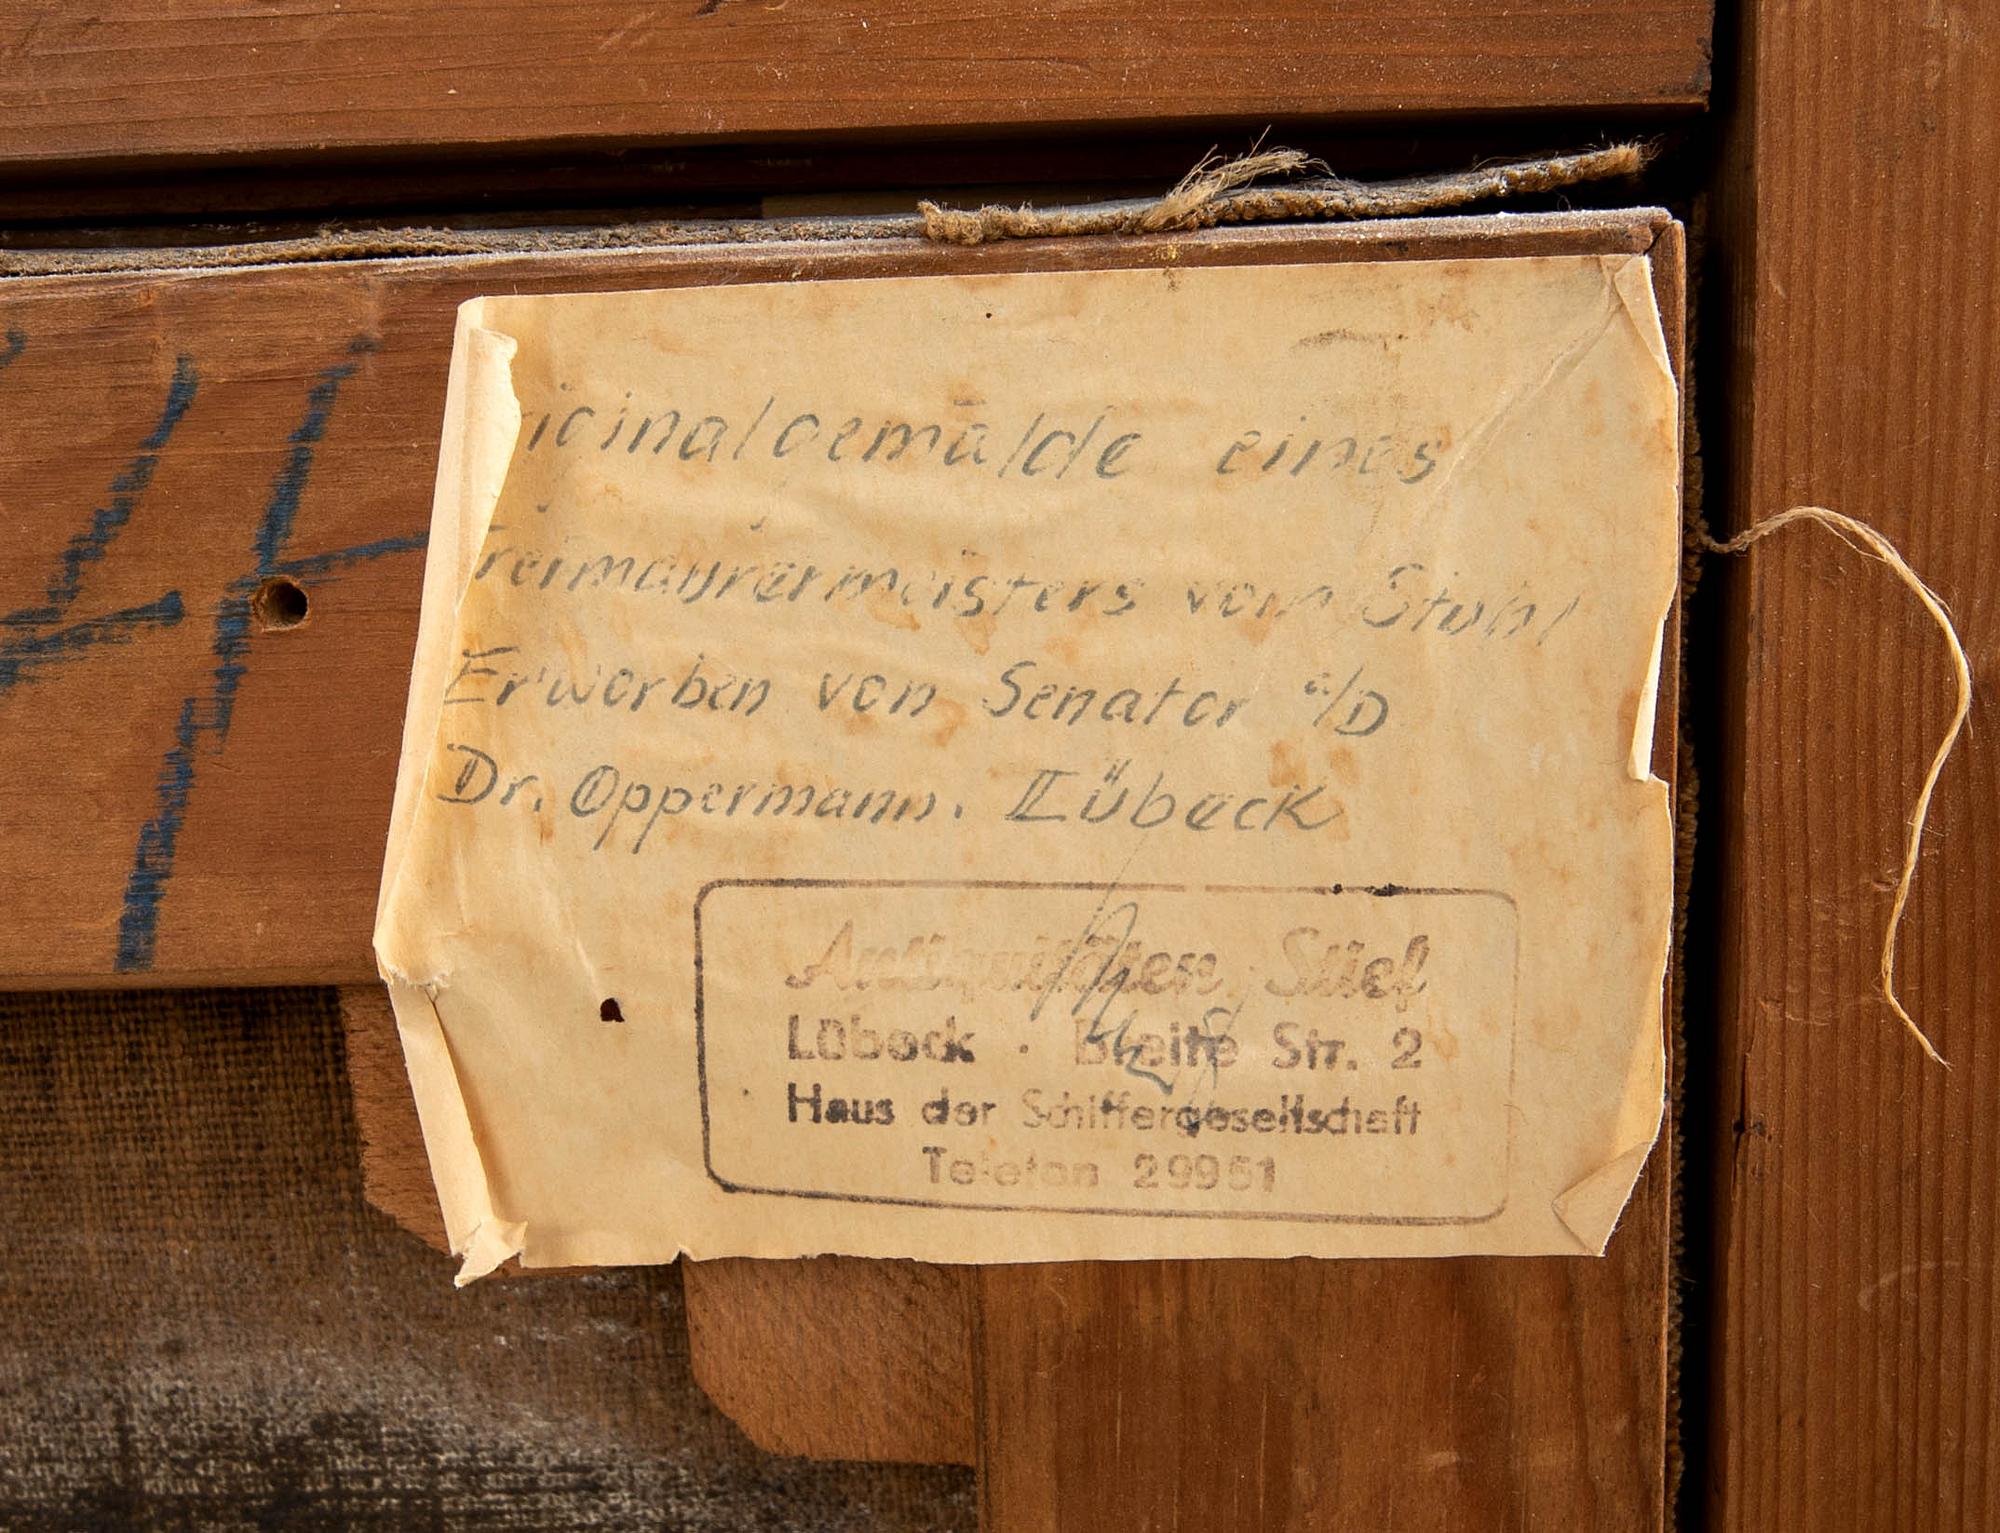 riginalgemälde eines
Freimaurermeisters vom Stuhl
Erworben von Senator a/D
Dr. Oppermann. Lübeck
Antiquitäten Stief
Lübeck · Breite Str. 2
Haus der Schiffergesellschaft
Telefon 29961